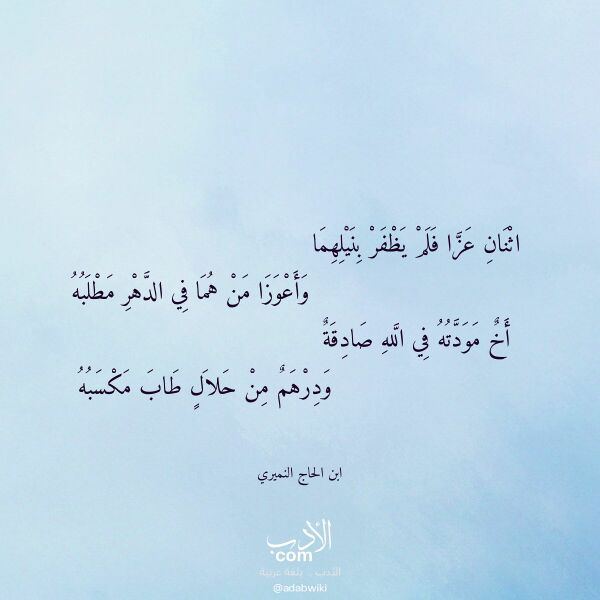 اثْنَانِ عَزَّا فَلَمْ يَظْفَرْ بِنَيْلِهِمَا
وَأَعْوَزَا مَنْ هُمَا فِي الدَّهْرِ مَطْلَبُهُ
أَخٌ مَوَدَّتُهُ فِي اللَّهِ صَادِقَةٌ
وَدِرْهَمٌ مِنْ حَلَالٍ طَابَ مَكْسَبُهُ
ابن الحاج النميري
الأدب
com
الأدب .. بلغة عربية
@adabwiki